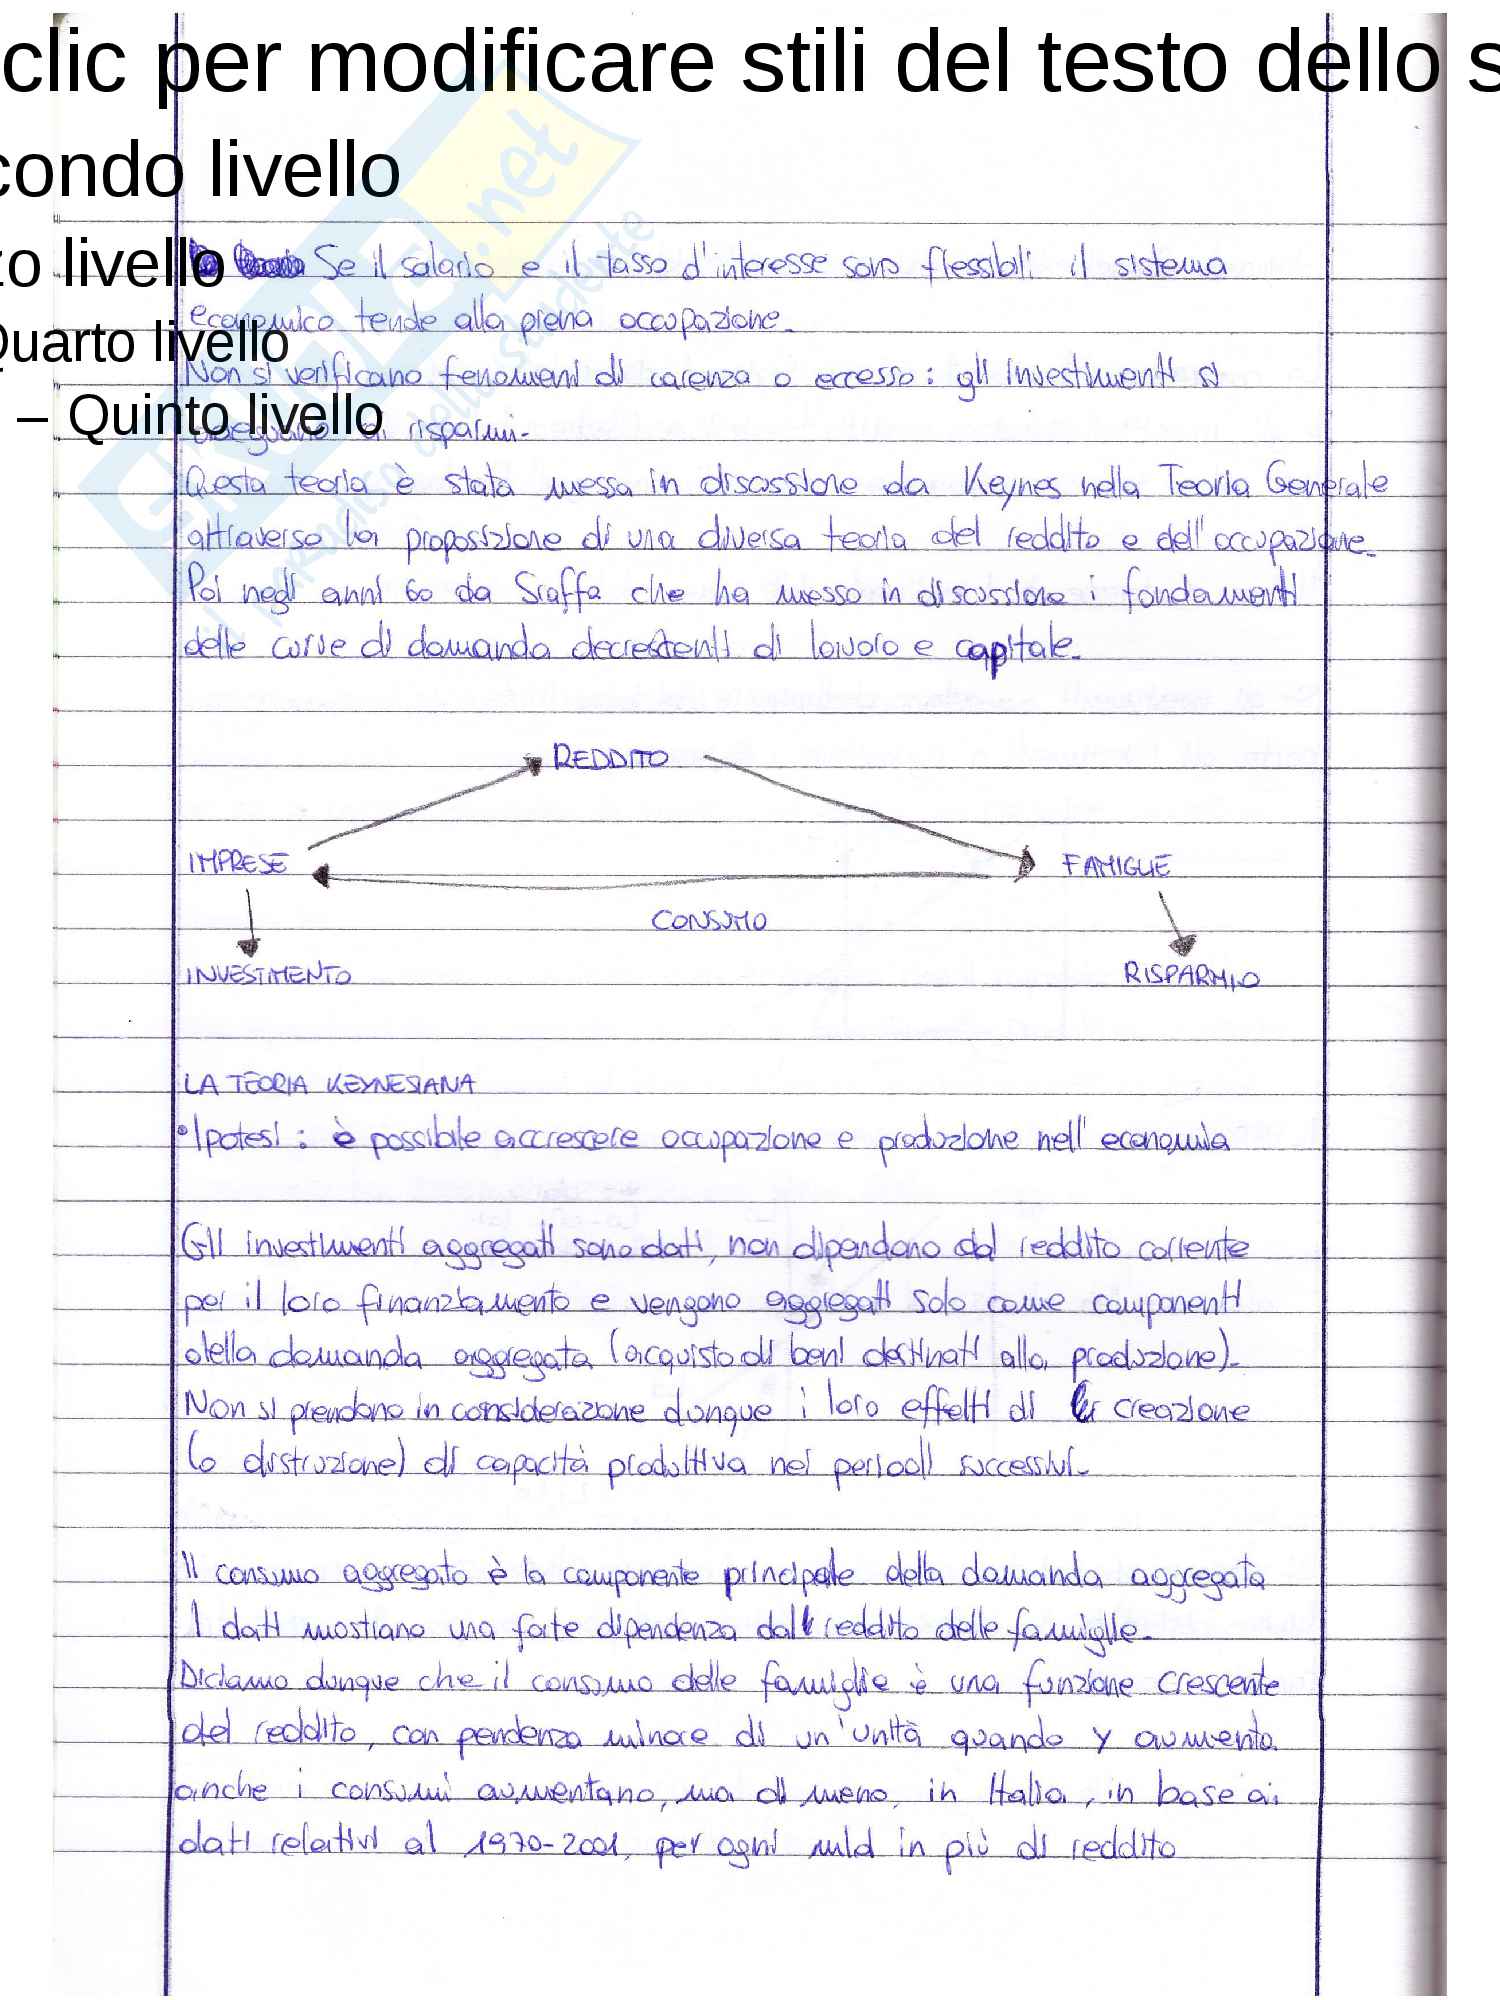 clic per modificare stili del testo dello s
condo livello
zo livello
Quarto livello
– Quinto livello
SKUOLA.net
il paradiso dello studente
Se il salario e il tasso d'interesse sono flessibili il sistema
economico tende alla piena occupazione.
Non si verificano fenomeni di carenza o eccesso: gli investimenti si
adeguano ai risparmi.
Questa teoria è stata messa in discussione da Keynes nella Teoria Generale
attraverso la proposizione di una diversa teoria del reddito e dell'occupazione.
Poi negli anni 60 da Sraffa che ha messo in discussione i fondamenti
delle curve di domanda decrescenti di lavoro e capitale.
REDDITO
IMPRESE FAMIGLIE
CONSUMO
INVESTIMENTO RISPARMIO
LA TEORIA KEYNESIANA
• Ipotesi: è possibile accrescere occupazione e produzione nell'economia
Gli investimenti aggregati sono dati, non dipendono dal reddito corrente
per il loro finanziamento e vengono aggregati solo come componenti
della domanda aggregata (acquisto di beni destinati alla produzione).
Non si prendono in considerazione dunque i loro effetti di creazione
(o distruzione) di capacità produttiva nei periodi successivi.
Il consumo aggregato è la componente principale della domanda aggregata
I dati mostrano una forte dipendenza dal reddito delle famiglie.
Diciamo dunque che il consumo delle famiglie è una funzione crescente
del reddito, con pendenza minore di un'unità quando y aumenta
anche i consumi aumentano, ma di meno, in Italia, in base ai
dati relativi al 1970-2001, per ogni mld in più di reddito